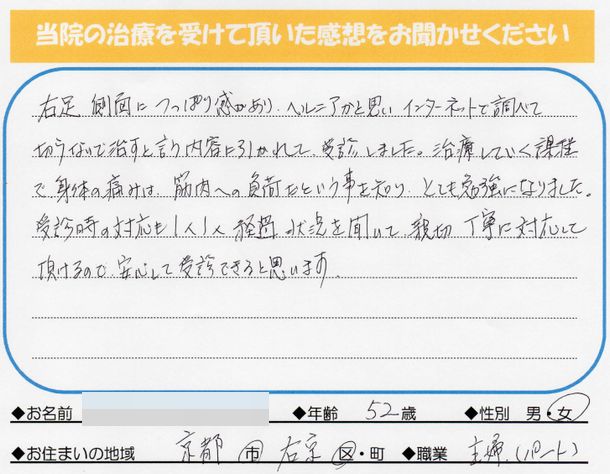 当院の治療を受けて頂いた感想をお聞かせください
右足 側面に つっぱり感があり、ヘルニアかと思い インターネットで調べて
切らないで治すと言う内容に引かれて、受診しました。治療していく課程
で 身体の痛みは、筋肉への負荷だという事を知り、とても勉強になりました。
受診時の対応も1人1人 経過 状況を聞いて 親切 丁寧に対応して
頂けるので、安心して受診できると思います。
◆お名前 ◆年齢 52歳 ◆性別 男・女
◆お住まいの地域 京都 市 右京 区・町 ◆職業 主婦(パート)